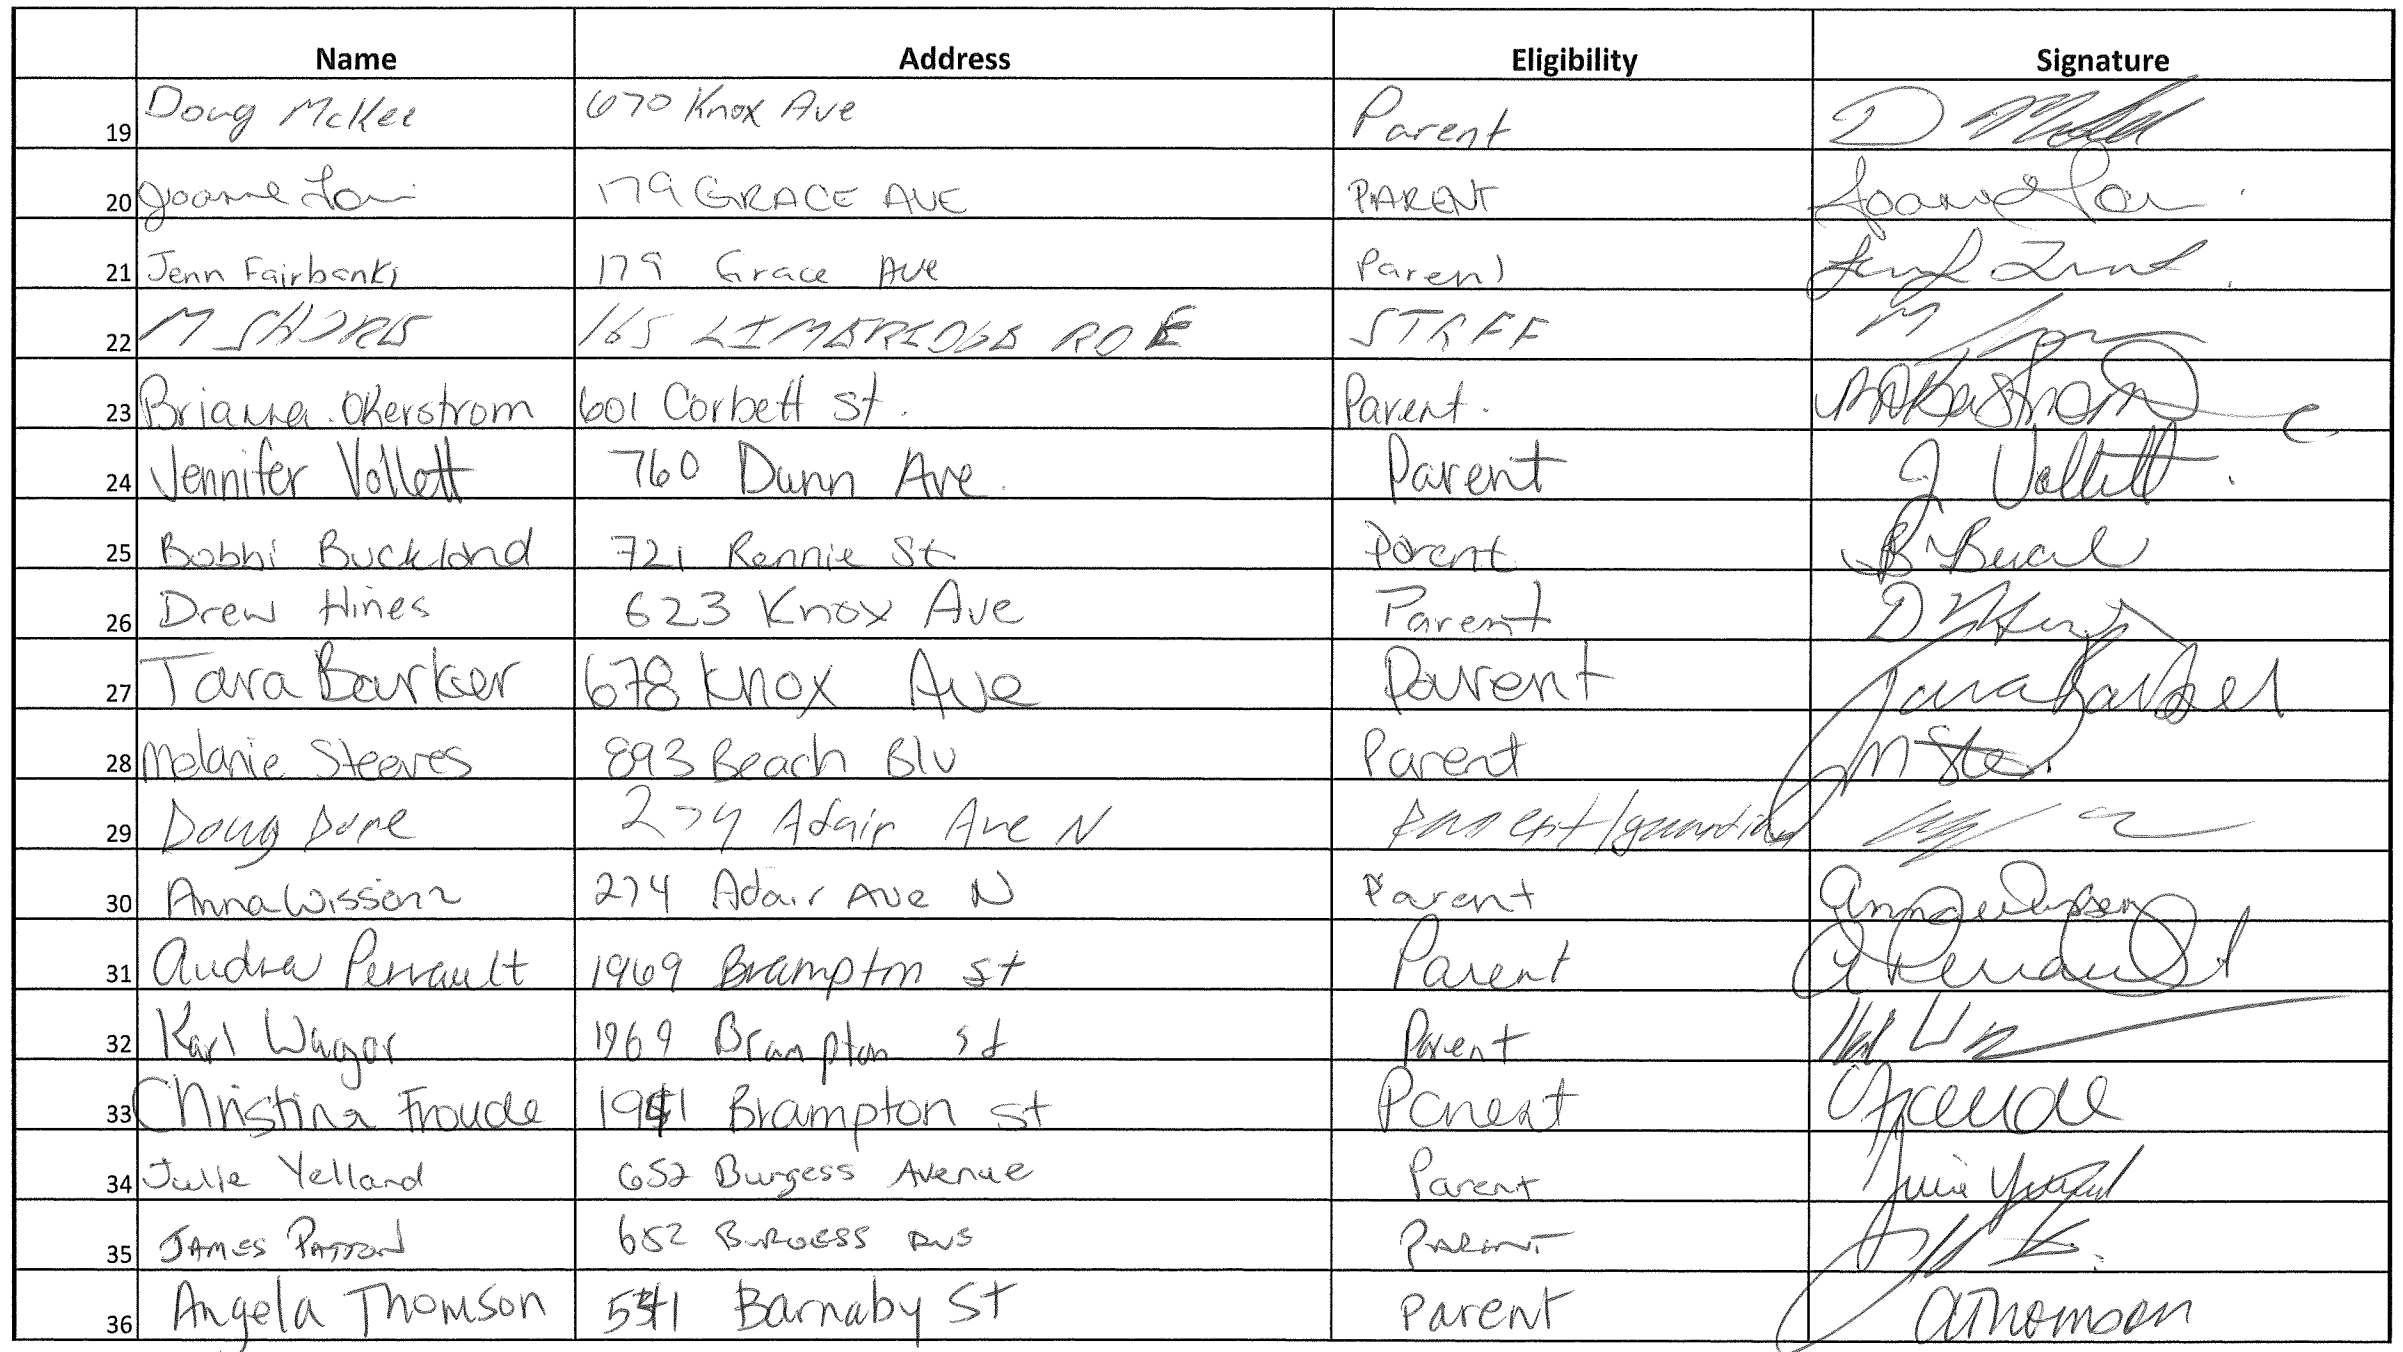 Name Address Eligibility Signature
19 Doug McKee 670 Knox Ave Parent D
20 Joanne 179 GRACE AVE PARENT Joanne
21 Jenn Fairbanks 179 Grace Ave Parent
22 M 165 LIMBRIDGE RD E STAFF M
23 Brianna Okerstrom 601 Corbett St. Parent. BOkerstrom
24 Jennifer Vollett 760 Dunn Ave. Parent J Vollett
25 Bobbi Buckland 721 Rennie St Parent B
26 Drew Hines 623 Knox Ave Parent D
27 Tara Barker 678 Knox Ave Parent Tara Barker
28 Melanie Steeves 893 Beach Blv Parent M
29 Doug 274 Adair Ave N parent/guardian
30 Anna Wissenz 274 Adair Ave N Parent Anna
31 Audra Perrault 1969 Brampton St Parent A Perrault
32 Karl Wagar 1969 Brampton St Parent
33 Christina Froude 1941 Brampton St Parent CFroude
34 Julie Yelland 652 Burgess Avenue Parent Julie
35 JAMES PATTON 652 BURGESS AVE PARENT
36 Angela Thomson 541 Barnaby St Parent AThomson